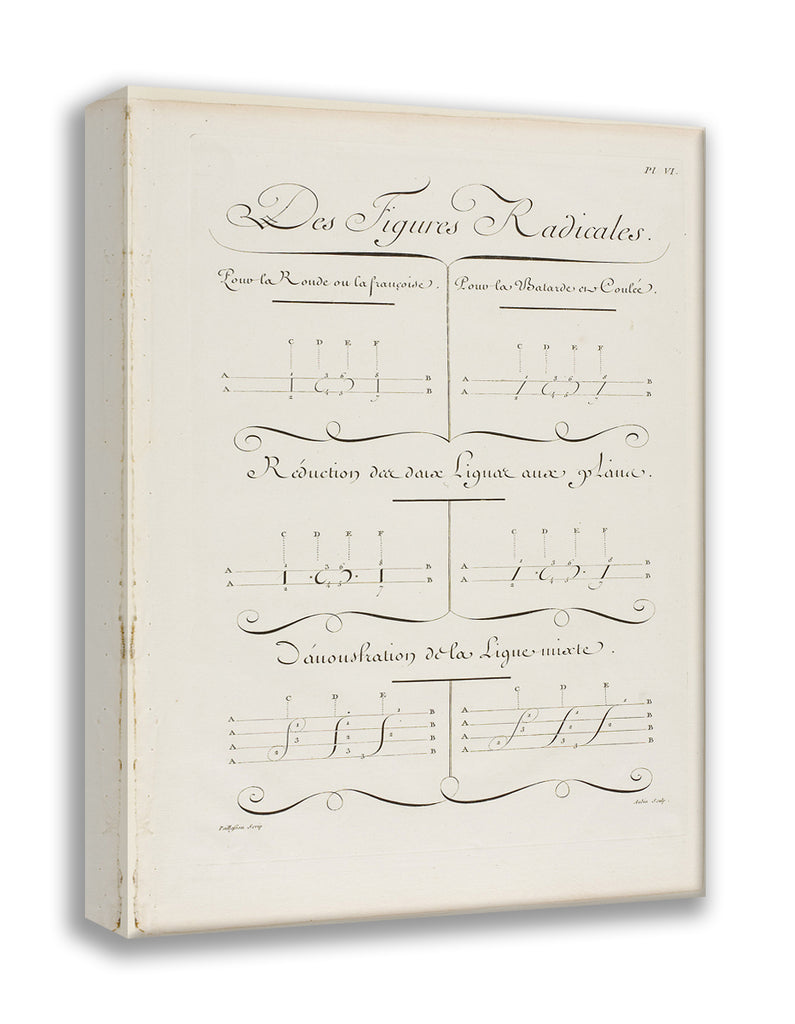 Pl VI.
Des Figures Radicales.
Pour la Ronde ou la françoise.
Pour la Batarde et Coulée.
C D E F
A 1 3 6 8 B
A 2 4 5 7 B
C D E F
A 1 3 6 8 B
A 2 4 5 7 B
Réduction des deux Lignes aux pleins.
C D E F
A 1 3 6 8 B
A 2 4 5 7 B
C D E F
A 1 3 6 8 B
A 2 4 5 7 B
Démonstration de la Ligne mixte.
C D E
A 1 B
A 2 1 2 B
A 3 2 B
A 2 3 3 B
C D E
A 1 B
A 2 1 2 B
A 3 2 B
A 2 3 B
Paillasson Scrip
Aubin Sculp.